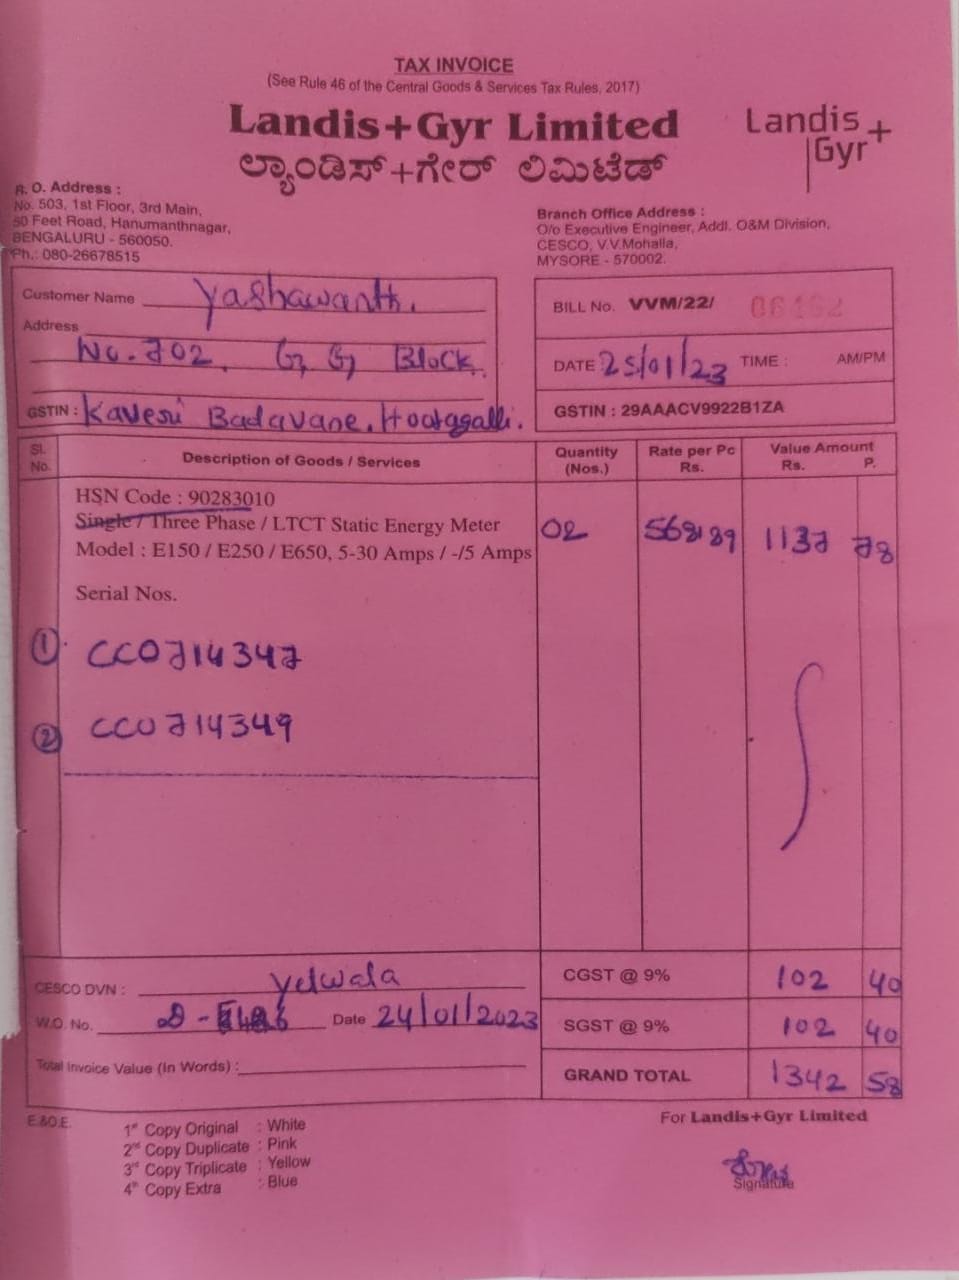 TAX INVOICE
(See Rule 46 of the Central Goods & Services Tax Rules, 2017)
Landis+Gyr Limited
ಲ್ಯಾಂಡಿಸ್+ಗೇರ್ ಲಿಮಿಟೆಡ್
Landis+
Gyr
R. O. Address :
No. 503, 1st Floor, 3rd Main,
50 Feet Road, Hanumanthnagar,
BENGALURU - 560050.
Ph.: 080-26678515
Branch Office Address :
O/o Executive Engineer, Addl. O&M Division,
CESCO, V.V.Mohalla,
MYSORE - 570002.
Customer Name Yashawanth.
Address
No. 702, G, G, Block.
GSTIN : Kaveri Badavane, Hootagalli.
BILL No. VVM/22/
DATE 25/01/23 TIME : AM/PM
GSTIN : 29AAACV9922B1ZA
Sl. No. Description of Goods / Services Quantity (Nos.) Rate per Pc Rs. Value Amount Rs. P.
HSN Code : 90283010
Single / Three Phase / LTCT Static Energy Meter 02 568.89 1137 78
Model : E150 / E250 / E650, 5-30 Amps / -/5 Amps
Serial Nos.
① CC0714347
② CC0714349
CESCO DVN : Yelwala
CGST @ 9% 102 40
W.O. No. Date 24/01/2023
SGST @ 9% 102 40
Total Invoice Value (In Words) :
GRAND TOTAL 1342 58
E.&O.E.
1st Copy Original : White
2nd Copy Duplicate : Pink
3rd Copy Triplicate : Yellow
4th Copy Extra : Blue
For Landis+Gyr Limited
Signature